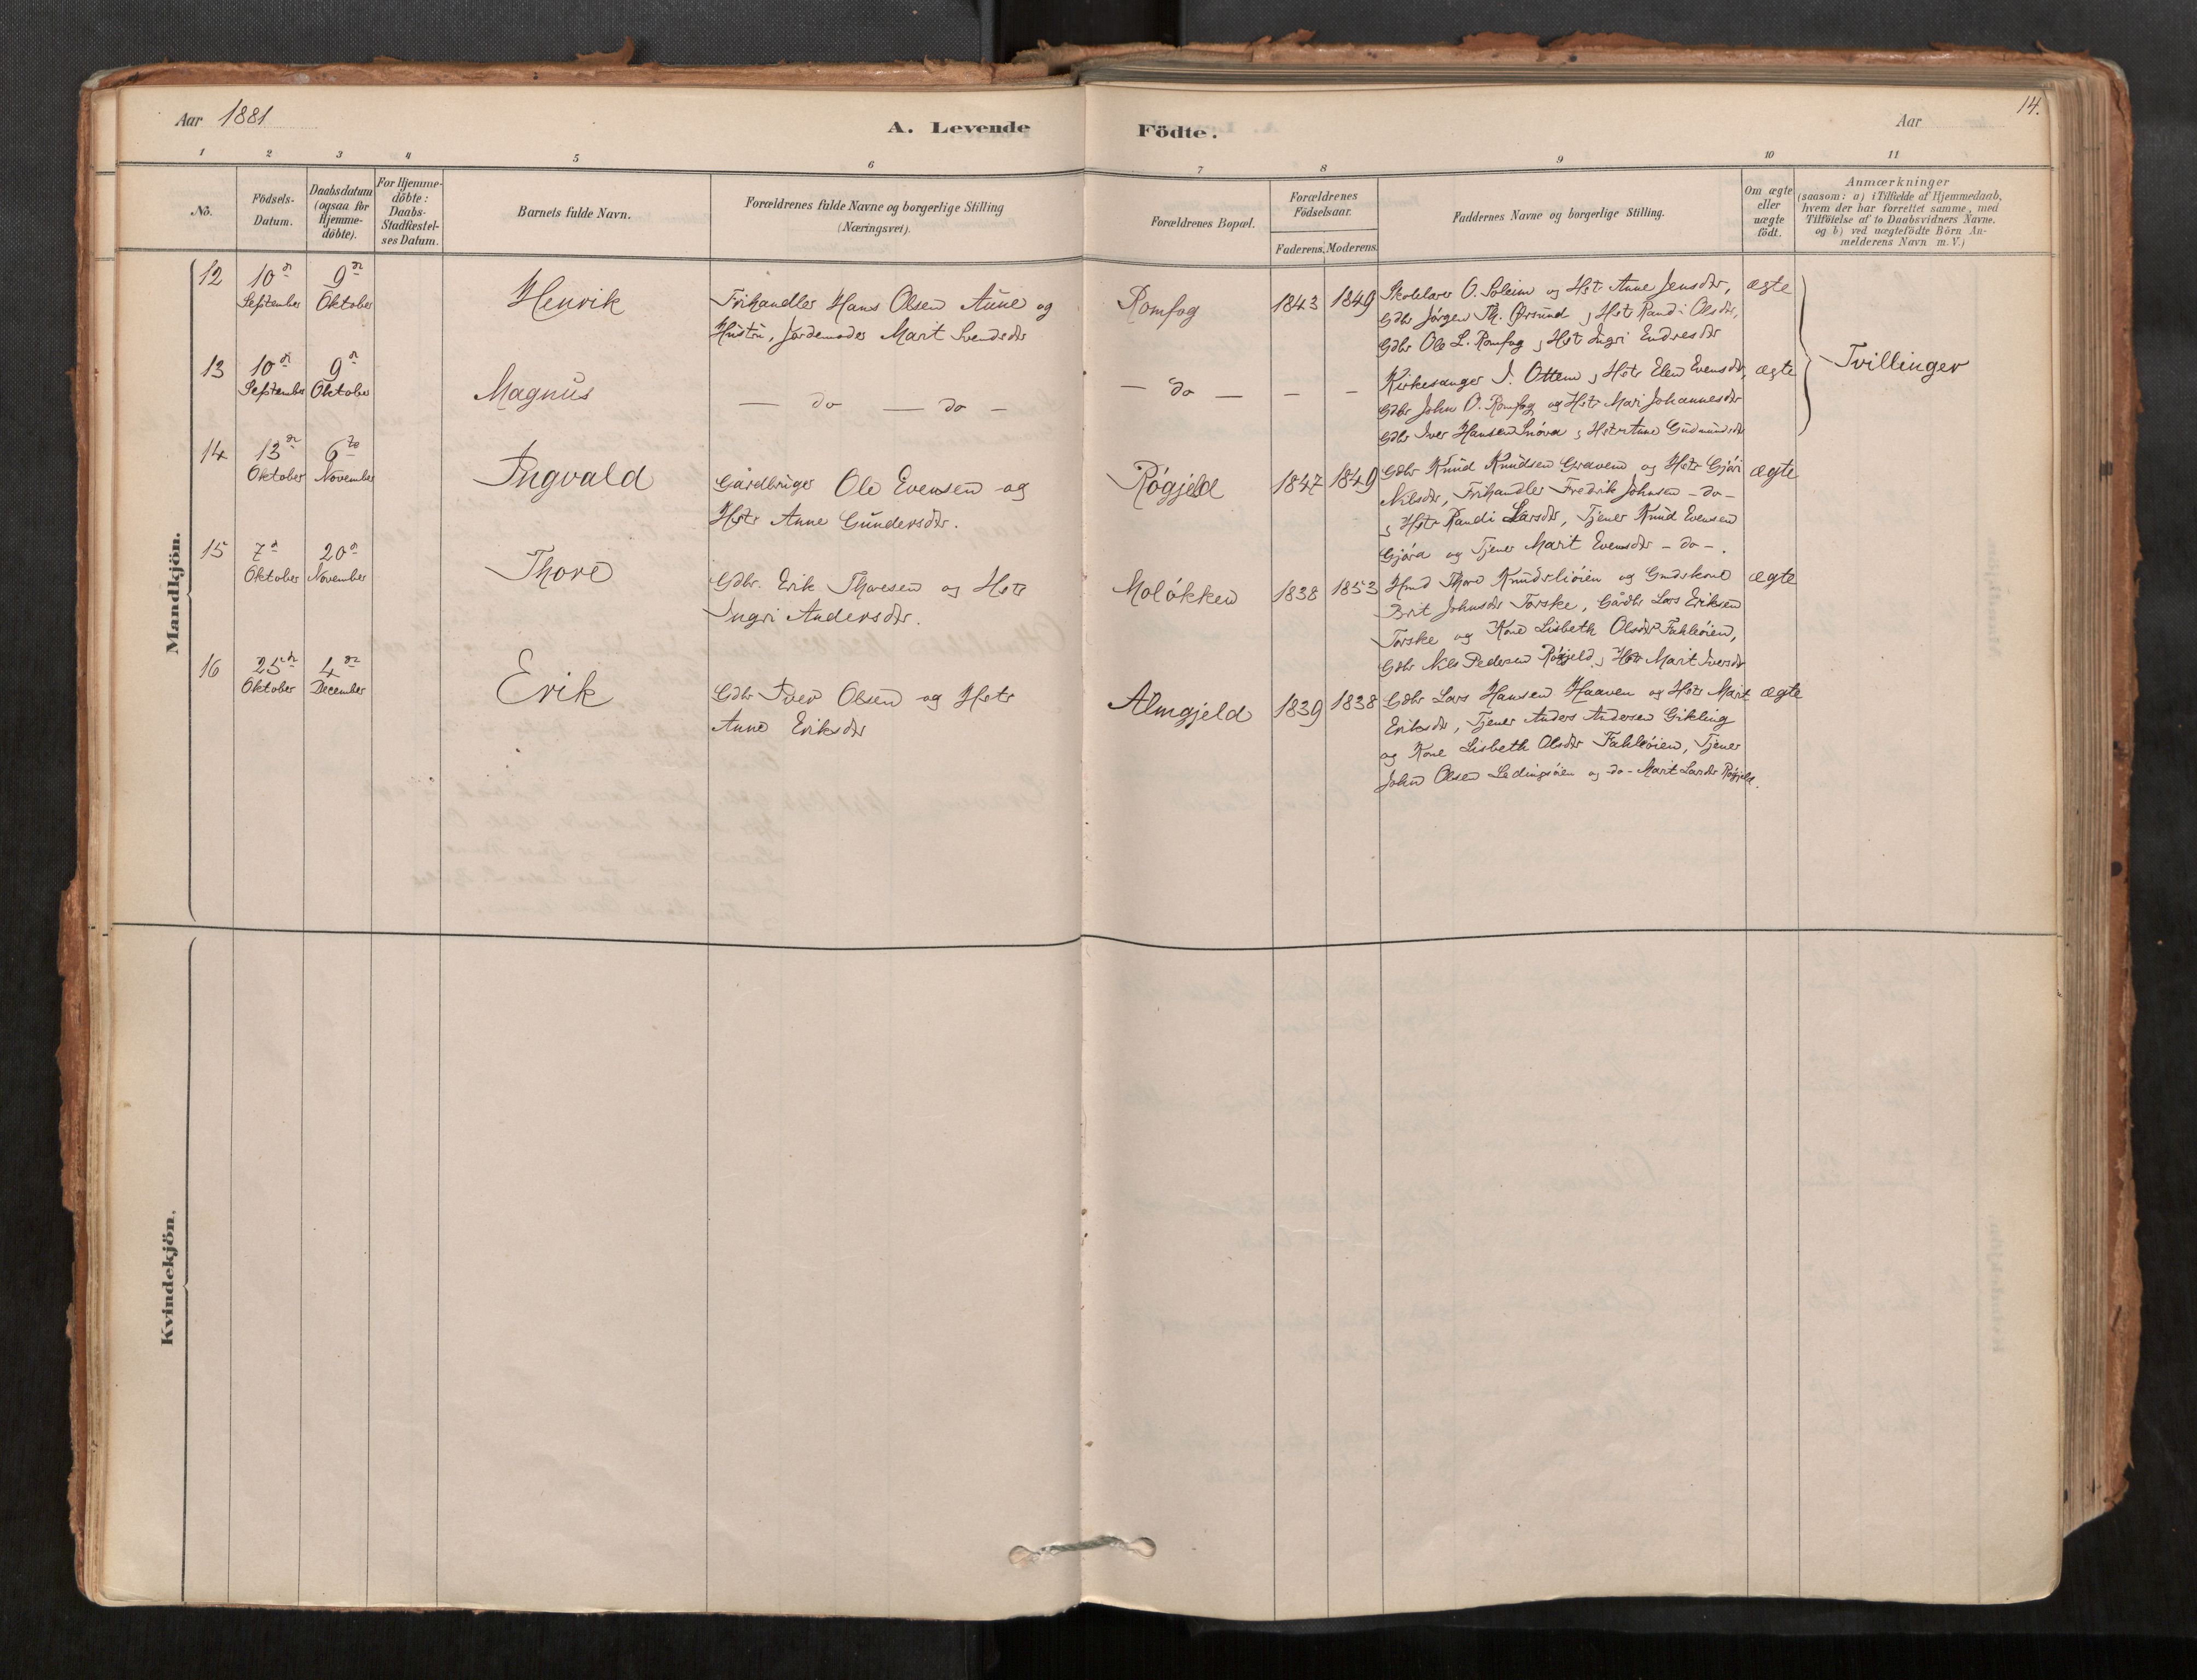 Aar 1881
A. Levende
Födte.
Aar
14.
1 2 3 4 5 6 7 8 9 10 11
No.
Födsels-
Datum.
Daabsdatum
(ogsaa for
Hjemme-
döbte).
For Hjemme-
döbte:
Daabs-
Stadfæstel-
ses Datum.
Barnets fulde Navn.
Forældrenes fulde Navne og borgerlige Stilling
(Næringsvei).
Forældrenes Bopæl.
Forældrenes
Födselsaar.
Faderens. Moderens.
Faddernes Navne og borgerlige Stilling.
Om ægte
eller
uægte
födt.
Anmærkninger
(saasom: a) i Tilfælde af Hjemmedaab,
hvem der har forrettet samme, med
Tilföielse af to Daabsvidners Navne,
og b) ved uægtefödte Börn An-
melderens Navn m. V.)
Mandkjön.
12 10de September 9de Oktober
Henrik
Frihandler Hans Olsen Aune og
Hustru, Jordemoder Marit Svendsdtr
Romfog 1843 1849
Skolelærer O. Soleim og Hstr Anne Jensdtr,
Gdbr Jörgen Th. Örsund og Hstr Randi Olsdtr,
Gdbr Ole L. Romfog og Hstr Ingri Endresdtr
ægte
13 10de September 9de Oktober
Magnus
— do — do —
— do — — —
Kirkesanger I. Ottem og Hstr Elen Evensdtr,
Gdbr John O. Romfog og Hstr Mari Johannesdtr
Gdbr Iver Hansen Snöva og Hstr Anne Gudmundsdtr
ægte
Tvillinger
14 13de Oktober 6te November
Ingvald
Gårdbruger Ole Evensen og
Hstr Anne Gundersdtr.
Rögjeld 1847 1849
Gdbr Knud Knudsen Gravem og Hstr Gjöri
Nilsdtr, Frihandler Fredrik Johnsen – do –
og Hstr Randi Larsdtr, Tjener Knud Evensen
Gjöra og Tjener Marit Evensdtr – do –.
ægte
15 7de Oktober 20de November
Thore
Gdbr. Erik Thoresen og Hstr
Ingri Andersdtr.
Molökken 1838 1853
Hmd Thore Knudsliöien og Gmdskone
Brit Johnsdtr Torske, Gårdbr Lars Eriksen
Torske og Kone Lisbeth Olsdtr Fahleöien,
Gdbr Nils Pedersen Rögjeld og Hstr Marit Iversdtr
ægte
16 25de Oktober 4de December
Erik
Gdbr Iver Olsen og Hstr
Anne Eriksdtr
Almgjeld 1839 1838
Gdbr Lars Hansen Haaven og Hstr Marit
Eriksdtr, Tjener Anders Andersen Gikling
og Kone Lisbeth Olsdtr Fahleöien, Tjener
John Olsen Ledingsöien og – do – Marit Larsdtr Rögjeld.
ægte
Kvindekjön.